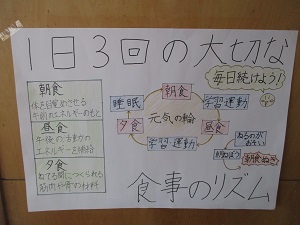 1日3回の大切な
毎日続けよう!
朝食
体を目覚めさせる
午前のエネルギーのもと
昼食
午後の活動の
エネルギーを補給
夕食
ねてる間につくられる
筋肉や骨の材料
朝食
学習 運動
昼食
学習・運動
夕食
睡眠
元気の輪
ねるのが
おそい
朝ねぼう
朝食ぬき
食事のリズム